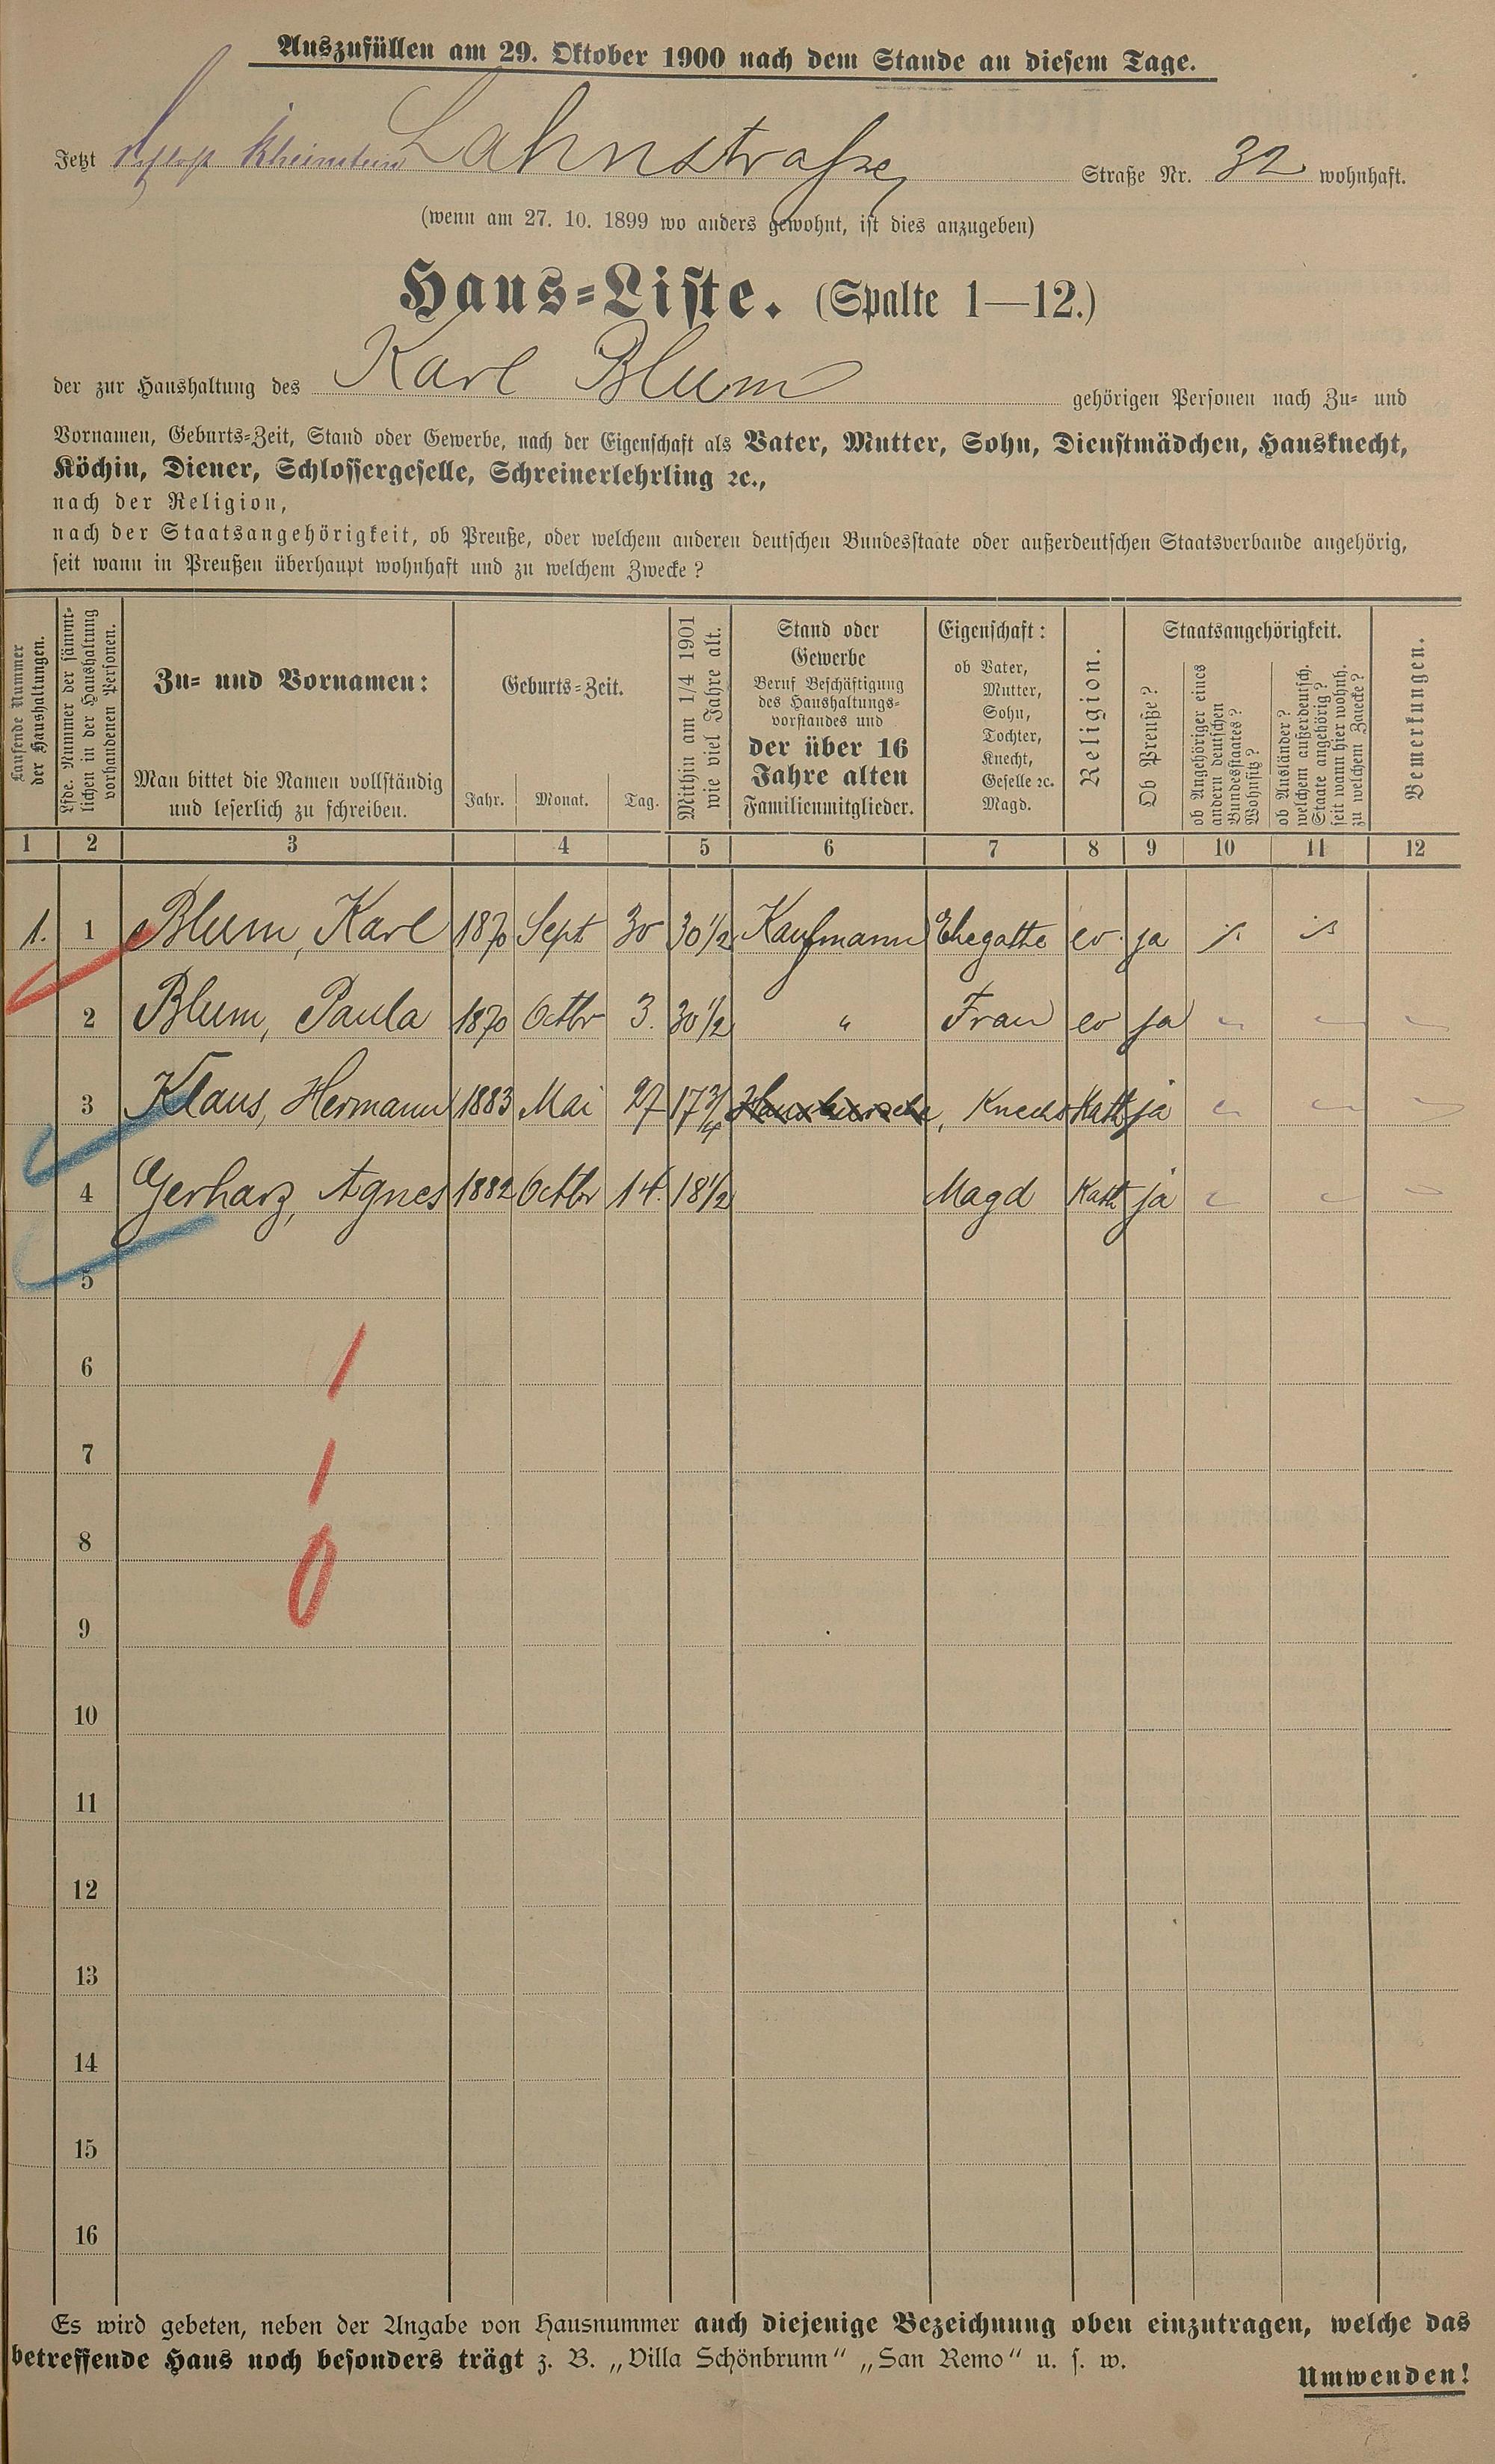 Auszufüllen am 29. Oktober 1900 nach dem Stande an diesem Tage.
Jetzt Schloss Rheinstein Lahnstraße Straße Nr. 32 wohnhaft.
(wenn am 27. 10. 1899 wo anders gewohnt, ist dies anzugeben)
Haus-Liste. (Spalte 1—12.)
der zur Haushaltung des Karl Blum gehörigen Personen nach Zu- und
Vornamen, Geburts-Zeit, Stand oder Gewerbe, nach der Eigenschaft als Vater, Mutter, Sohn, Dienstmädchen, Hausknecht,
Köchin, Diener, Schlossergeselle, Schreinerlehrling ꝛc.,
nach der Religion,
nach der Staatsangehörigkeit, ob Preuße, oder welchem anderen deutschen Bundesstaate oder außerdeutschen Staatsverbande angehörig,
seit wann in Preußen überhaupt wohnhaft und zu welchem Zwecke?
Laufende Nummer
der Haushaltungen.
Lfde. Nummer der sämmt-
lichen in der Haushaltung
vorhandenen Personen.
Zu- und Vornamen:
Man bittet die Namen vollständig
und leserlich zu schreiben.
Geburts-Zeit.
Jahr. Monat. Tag.
Mithin am 1/4 1901
wie viel Jahre alt.
Stand oder
Gewerbe
Beruf Beschäftigung
des Haushaltungs-
vorstandes und
der über 16
Jahre alten
Familienmitglieder.
Eigenschaft:
ob Vater,
Mutter,
Sohn,
Tochter,
Knecht,
Geselle ꝛc.
Magd.
Religion.
Staatsangehörigkeit.
Ob Preuße?
ob Angehöriger eines
andern deutschen
Bundesstaates?
Wohnsitz?
ob Ausländer?
welchem außerdeutsch.
Staate angehörig?
seit wann hier wohnh.
zu welchem Zwecke?
Bemerkungen.
1 2 3 4 5 6 7 8 9 10 11 12
1. 1 Blum, Karl 1870 Sept 30 30 1/2 Kaufmann Ehegatte ev. ja
2 Blum, Paula 1870 Octbr 3. 30 1/2 " Frau ev ja
3 Klaus, Hermann 1883 Mai 27 17 3/4 Hausbursche, Knecht Kath ja
4 Gerharz, Agnes 1882 Octbr 14. 18 1/2 Magd Kath ja
5
6
7
8
9
10
11
12
13
14
15
16
1
1
0
Es wird gebeten, neben der Angabe von Hausnummer auch diejenige Bezeichnung oben einzutragen, welche das
betreffende Haus noch besonders trägt z. B. „Villa Schönbrunn“ „San Remo“ u. s. w.
Umwenden!